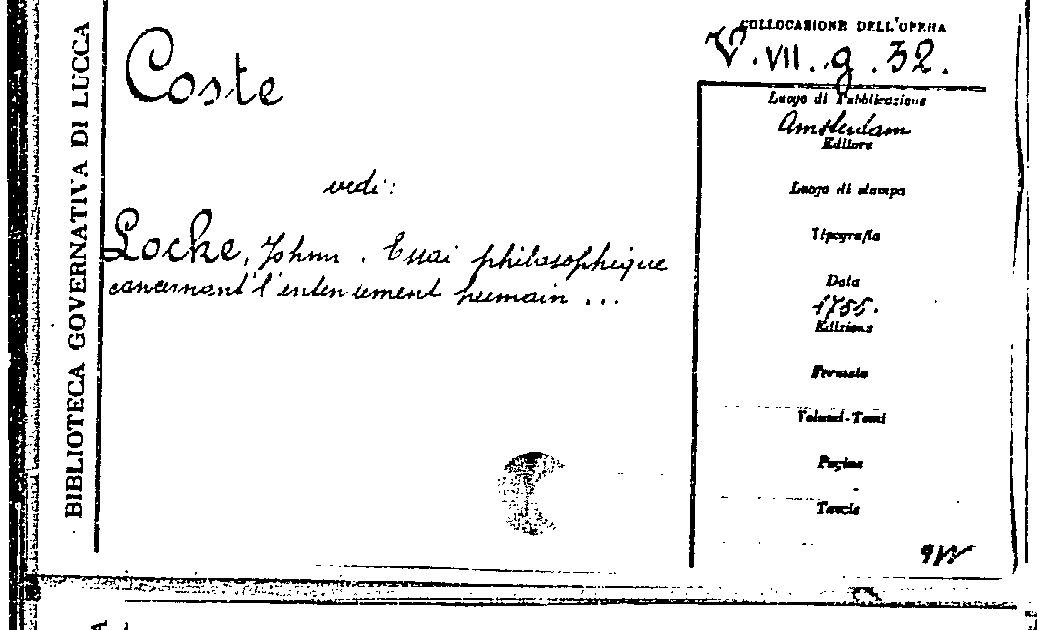 BIBLIOTECA GOVERNATIVA DI LUCCA
Coste
vedi:
Locke, Johnn. Essai philosophique
concernant l'entendement humain ...
COLLOCAZIONE DELL'OPERA
V. VII. g. 32.
Luogo di Pubblicazione
Amsterdam
Editore
Luogo di stampa
Tipografia
Data
1755.
Edizione
Formato
Volumi-Tomi
Pagine
Tavole